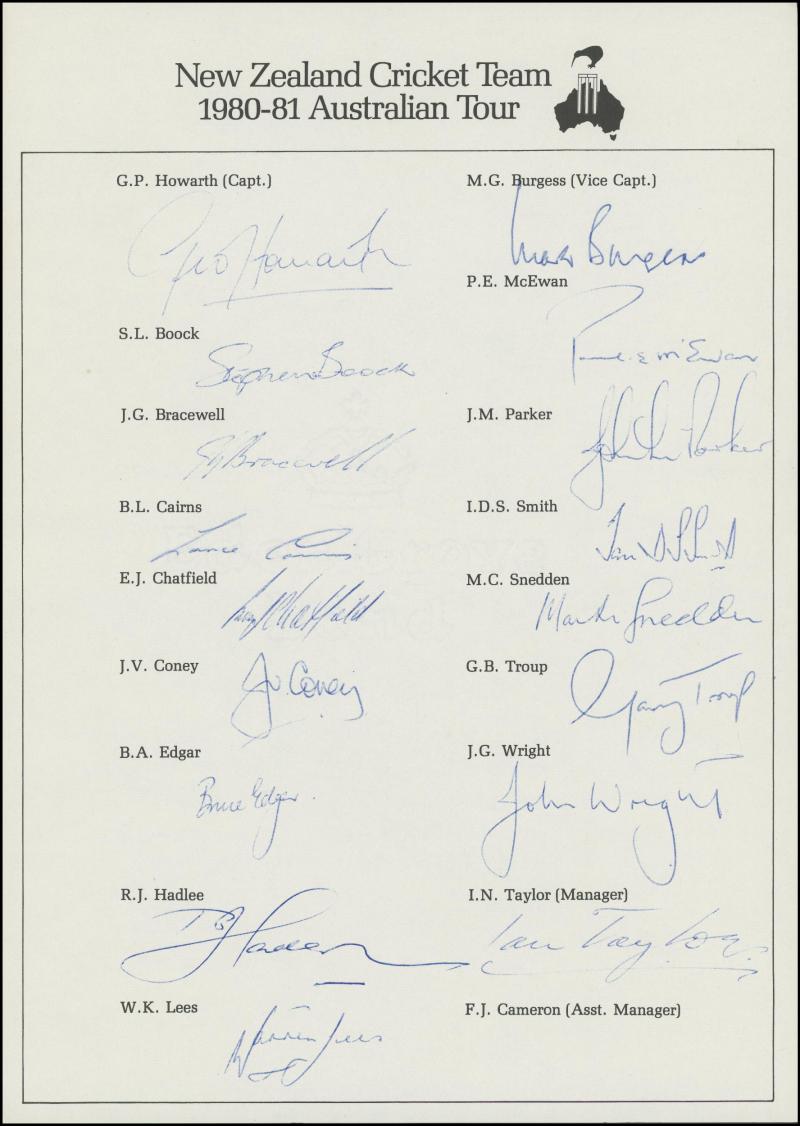 New Zealand Cricket Team
1980-81 Australian Tour
G.P. Howarth (Capt.)
Geo Howarth
S.L. Boock
Stephen Boock
J.G. Bracewell
J G Bracewell
B.L. Cairns
Lance Cairns
E.J. Chatfield
Ewen Chatfield
J.V. Coney
J.V. Coney
B.A. Edgar
Bruce Edgar
R.J. Hadlee
R J Hadlee
W.K. Lees
Warren Lees
M.G. Burgess (Vice Capt.)
Mark Burgess
P.E. McEwan
Paul E McEwan
J.M. Parker
John M Parker
I.D.S. Smith
Ian D S Smith
M.C. Snedden
Martin Snedden
G.B. Troup
Gary Troup
J.G. Wright
John Wright
I.N. Taylor (Manager)
Ian Taylor
F.J. Cameron (Asst. Manager)